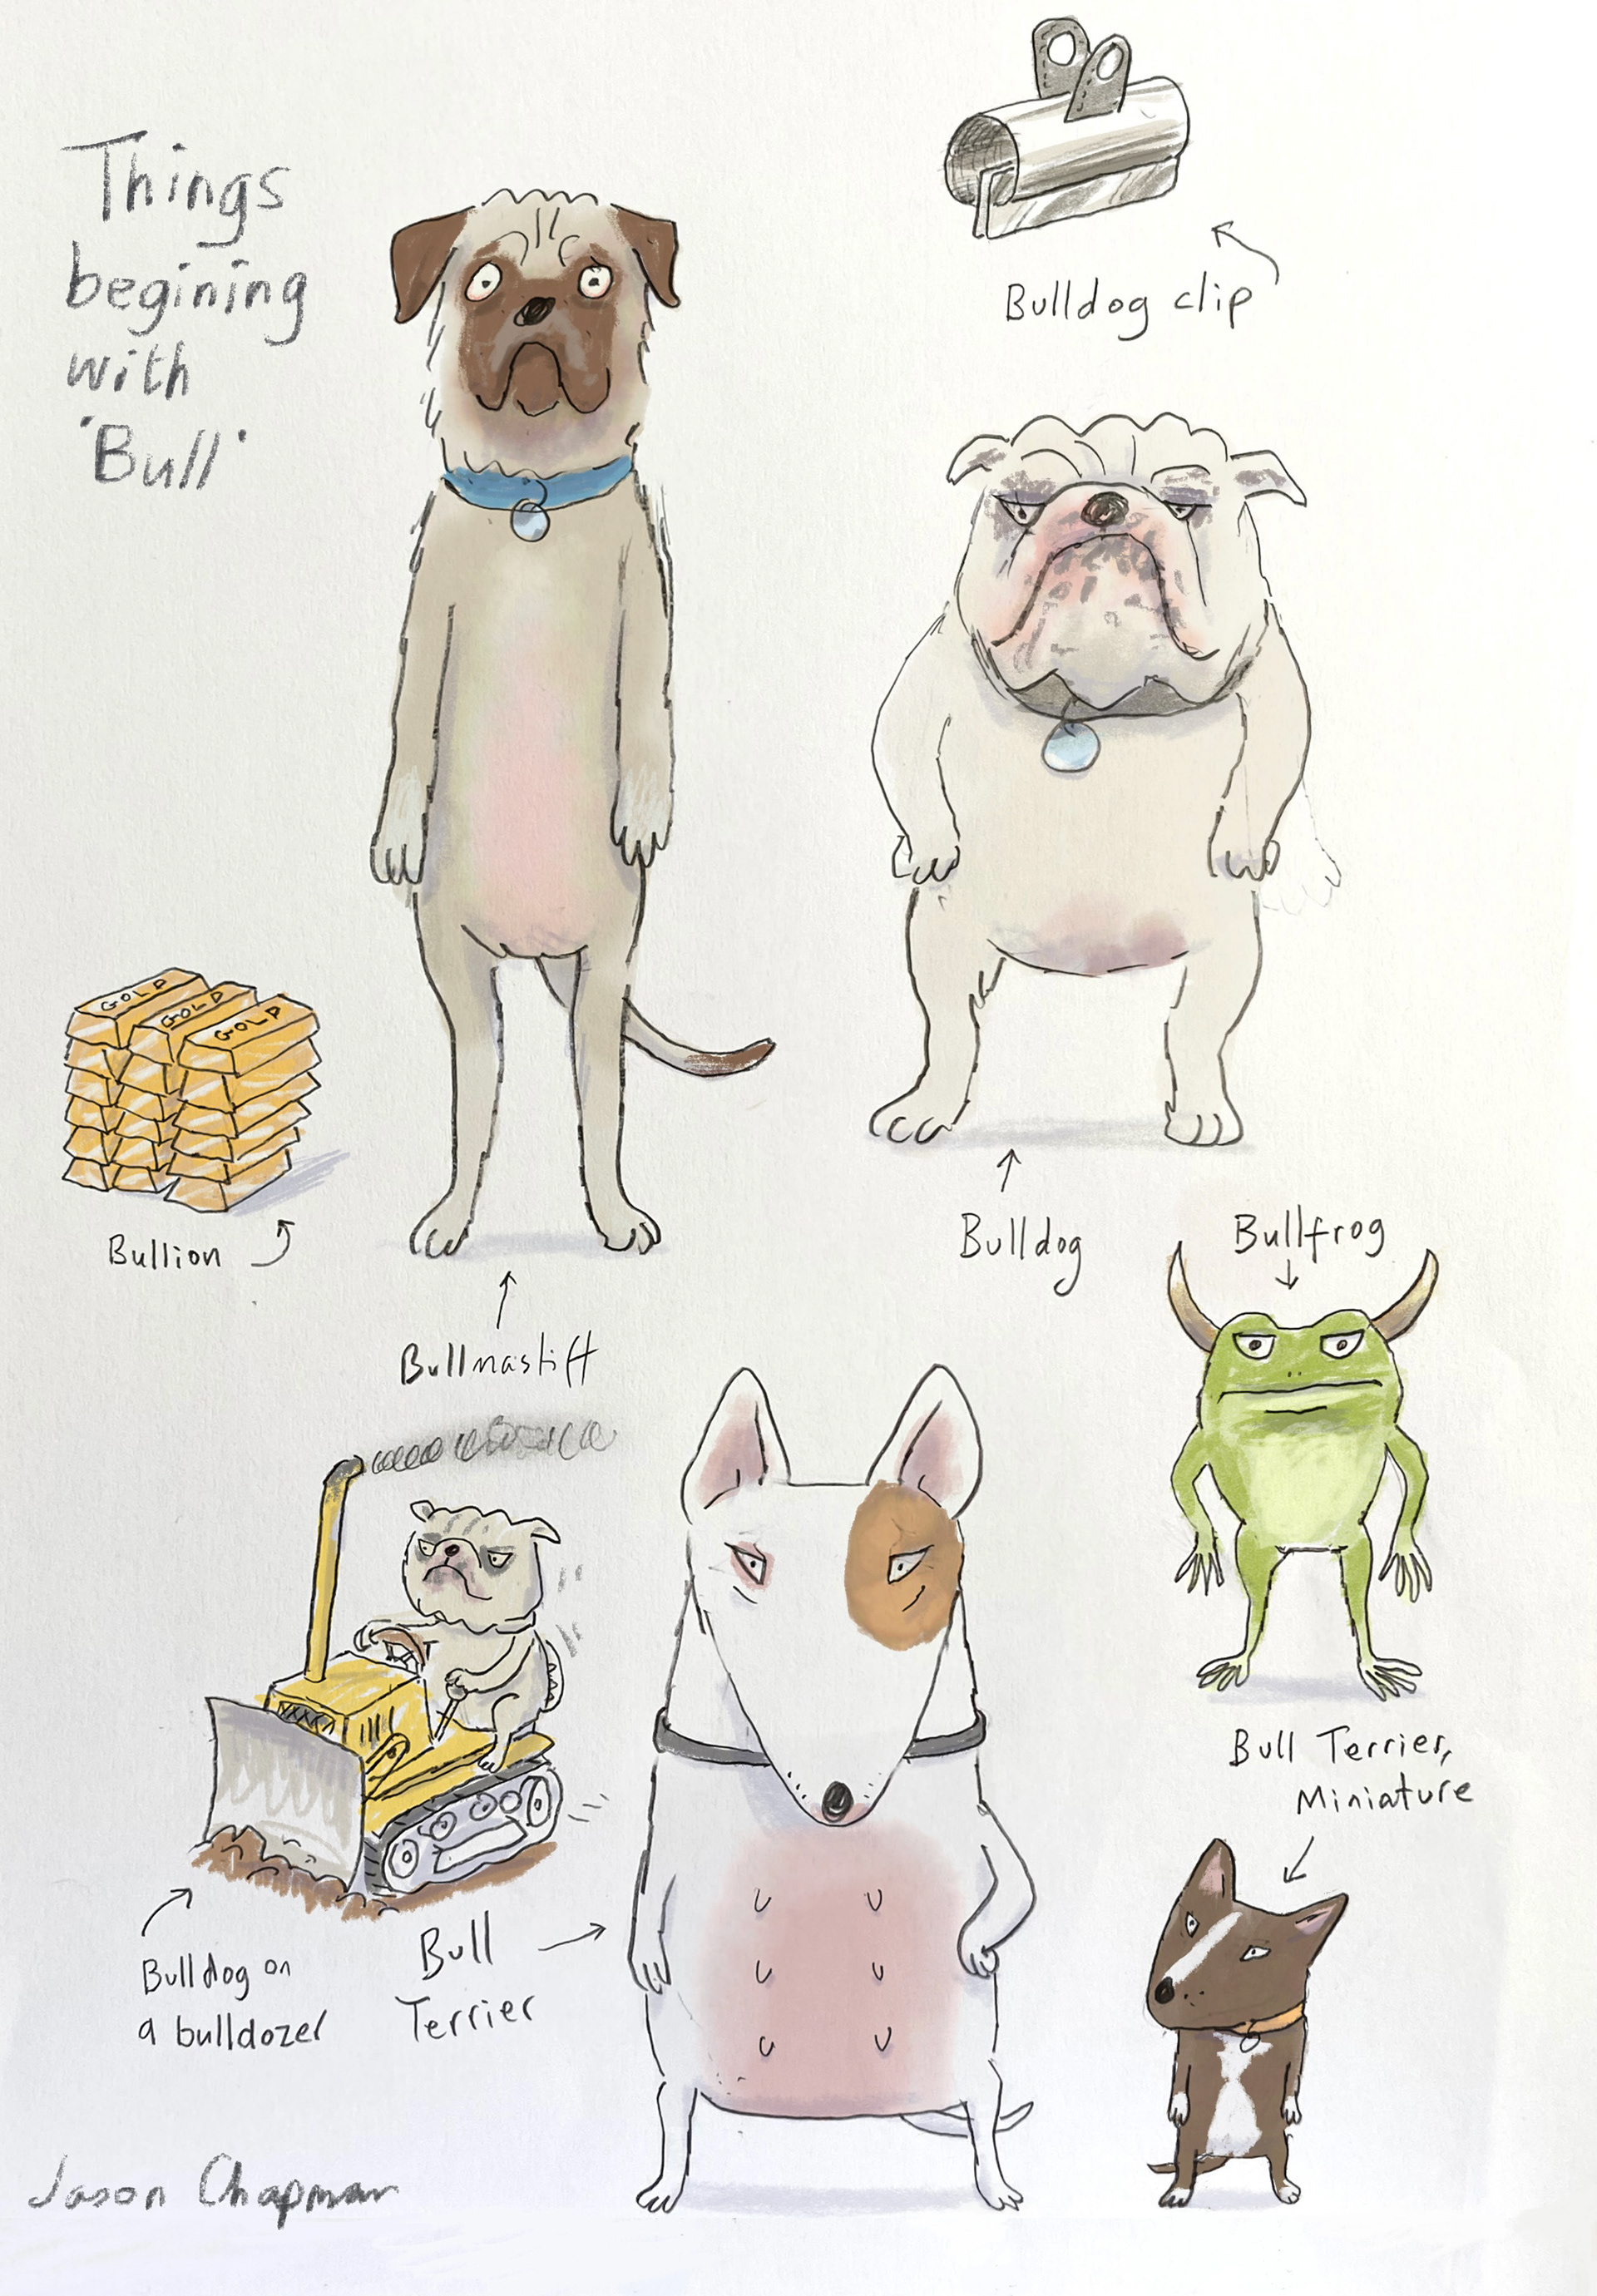 Things
begining
with
'Bull'
Bulldog clip
GOLD
GOLD
GOLD
Bullion
Bullmastiff
Bulldog
Bullfrog
Bulldog on
a bulldozer
Bull
Terrier
Bull Terrier,
Miniature
Jason Chapman